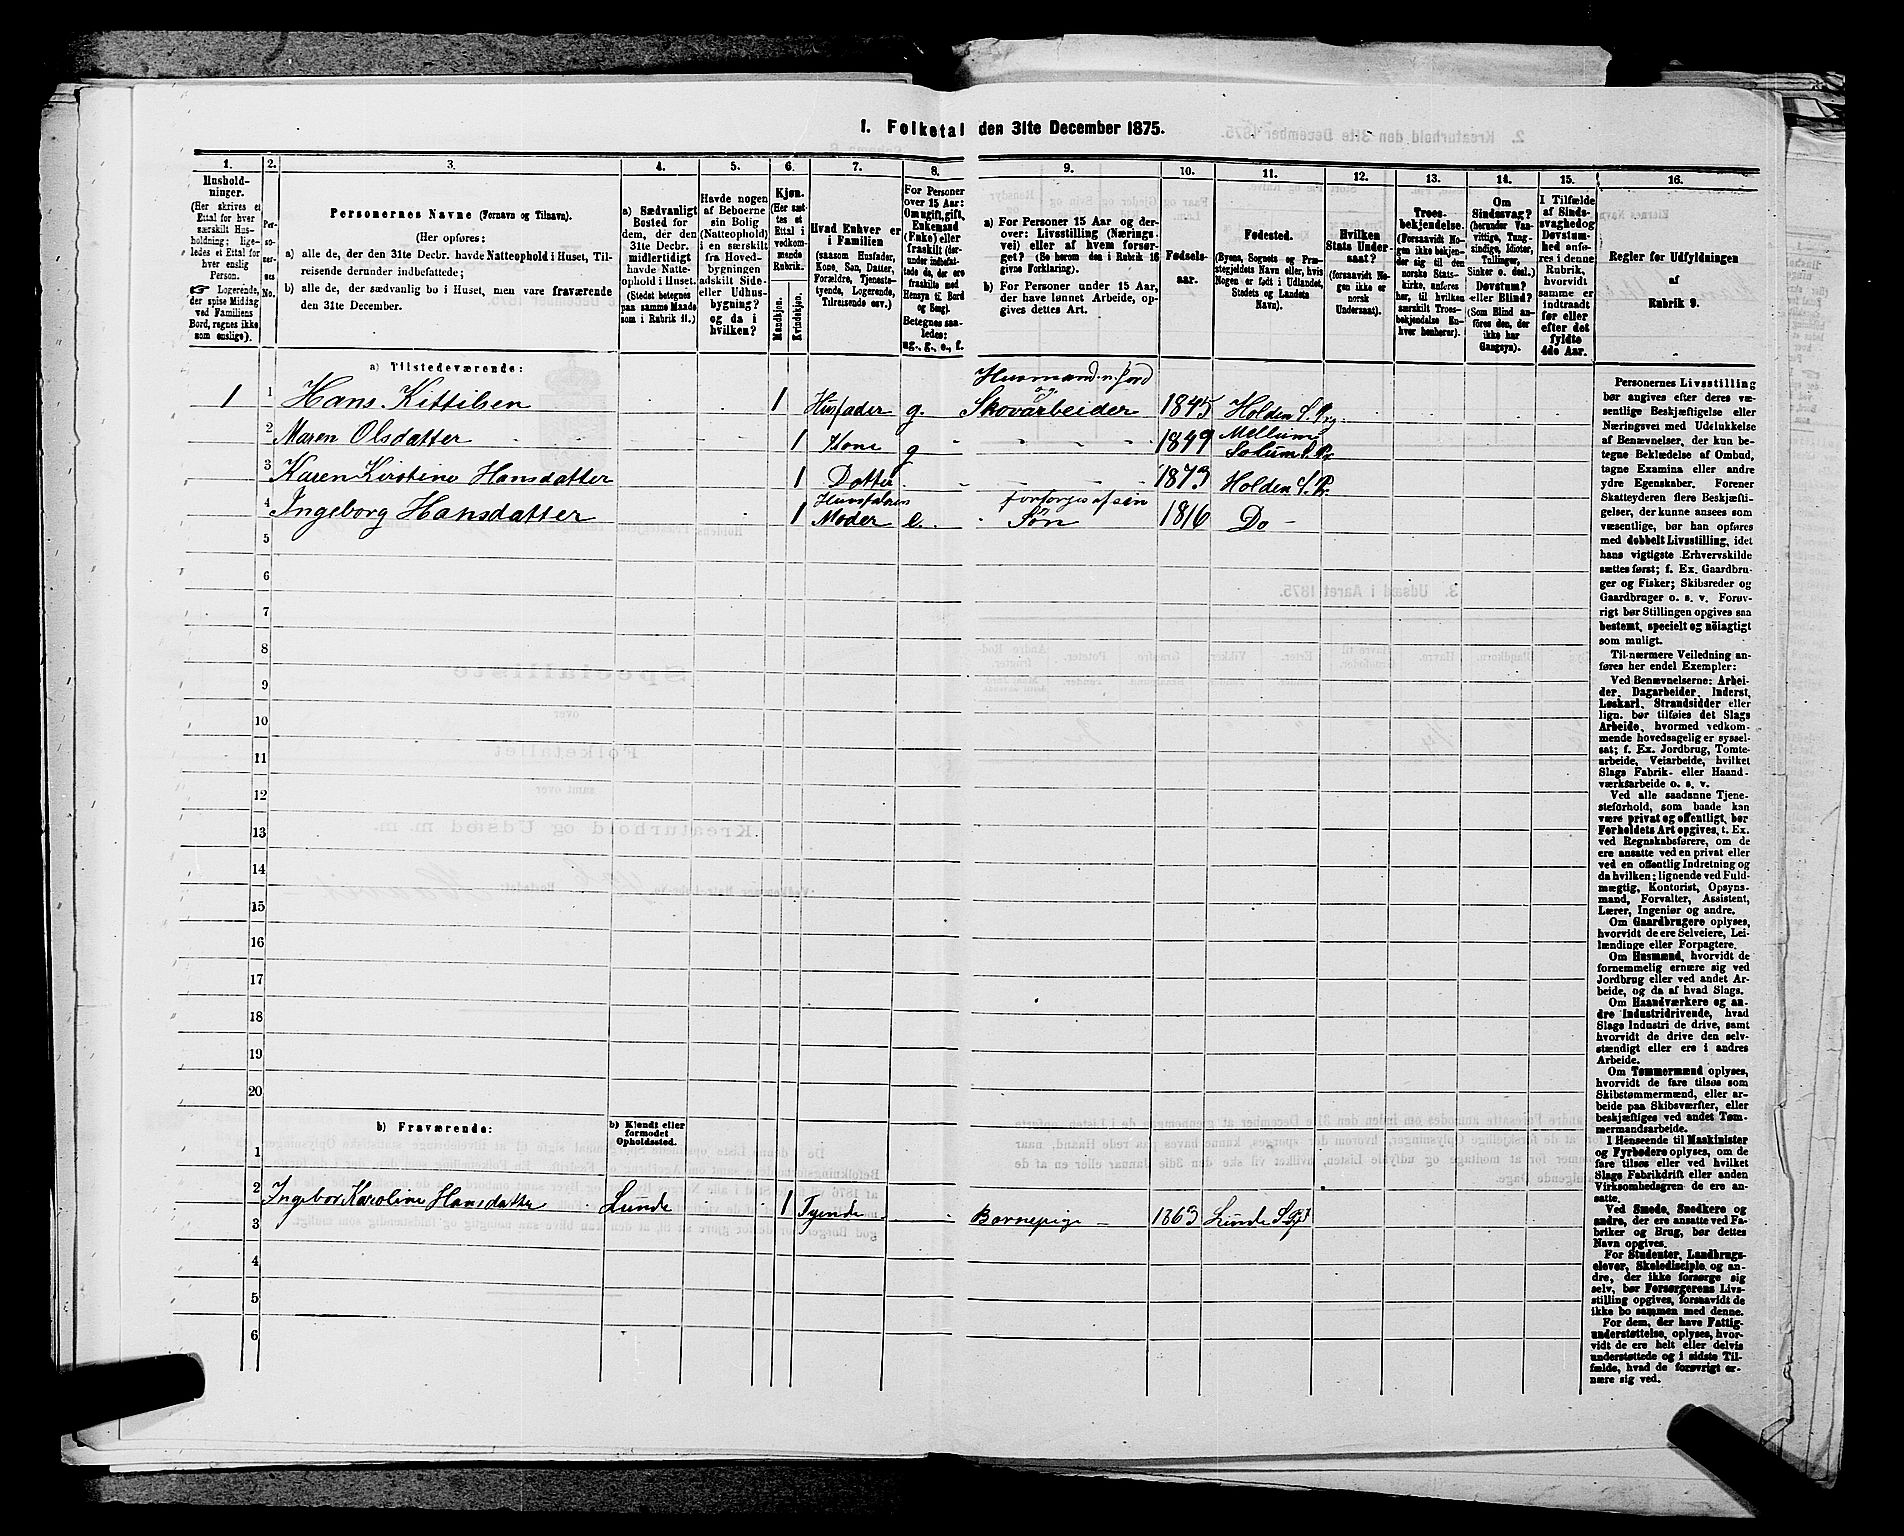 1. Folketal den 31te December 1875.
1. 2. 3. 4. 5. 6. 7. 8. 9. 10. 11. 12. 13. 14. 15. 16.
Hushold-
ninger.
(Her skrives et
Ettal for hver
særskilt Hus-
holdning; lige-
ledes et Ettal for
hver enslig
Person.
Logerende,
der spise Middag
ved Familiens
Bord, regnes ikke
som enslige).
Per-
so-
ner-
nes
No.
Personernes Navne (Fornavn og Tilnavn).
(Her opføres:
a) alle de, der den 31te Decbr. havde Natteophold i Huset, Til-
reisende derunder indbefattede;
b) alle de, der sædvanlig bo i Huset, men vare fraværende
den 31te December.
a) Sædvanligt
Bosted for
dem, der den
31te Decbr.
midlertidigt
havde Natte-
ophold i Huset.
(Stedet betegnes
paa samme Maade
som i Rubrik 11.)
Havde nogen
af Beboerne
sin Bolig
(Natteophold)
i en særskilt
fra Hoved-
bygningen
adskilt Side-
eller Udhus-
bygning?
og da i
hvilken?
Kjøn.
(Her sæt-
tes et
Ettal i
vedkom-
mende
Rubrik.
Mandkjøn.
Kvindekjøn.
Hvad Enhver er
i Familien
(saasom Husfader,
Kone, Søn, Datter,
Forældre, Tjeneste-
tyende, Logerende,
Tilreisende osv.)
For Personer
over 15 Aar:
Om ugift, gift,
Enkemand
(Enke) eller
fraskilt (der-
under indbefat-
tede de, der ere
fraskilte med
Hensyn til Bord
og Seng).
Betegnes saa-
ledes:
ug., g., e., f.
a) For Personer 15 Aar og der-
over: Livsstilling (Nærings-
vei) eller af hvem forsør-
get? (Se herom den i Rubrik 16
givne Forklaring).
b) For Personer under 15 Aar,
der have lønnet Arbeide, op-
gives dettes Art.
Fødsels-
aar.
Fødested.
(Byens, Sognets og Præ-
stegjeldets Navn eller, hvis
Nogen er født i Udlandet,
Stedets og Landets
Navn).
Hvilken
Stats Under-
saat?
(forsaavidt No-
gen ikke er
norsk
Undersaat).
Troes-
bekjendelse.
(Forsaavidt No-
gen ikke bekjen-
der sig til den
norske Stats-
kirke, anføres
her, til hvilken
særskilt Troes-
bekjendelse En-
hver henhører).
Om
Sindssvag?
(herunder Van-
vittige, Tung-
sindige, Idioter,
Tullinger,
Sinker o. desl.)
Døvstum?
eller Blind?
(Som Blind an-
føres den, der
ikke har
Gangsyn).
I Tilfælde
af Sinds-
svaghed og
Døvstum-
hed anfø-
res i denne
Rubrik,
hvorvidt
samme er
indtraadt
før eller
efter det
fyldte
4de Aar.
Regler for Udfyldningen
af
Rubrik 9.
a) Tilstedeværende:
Husmand m. jord
og
1 1 Hans Kittilsen 1 Husfader g. Skovarbeider 1845 Holden S. Prg
Mellum
2 Maren Olsdatter 1 Kone g " " " 1849 Solum S. Pr
3 Karen Kirstine Hansdatter 1 Datter 1873 Holden S. Pr.
Husfaders forsørges af sin
4 Ingeborg Hansdatter 1 Moder e. Søn 1816 Do
5
6
7
8
9
10
11
12
13
14
15
16
17
18
19
20
b) Fraværende:
b) Kjendt eller
formodet
Opholdssted.
1
2 Ingebor Karoline Hansdatter Lunde 1 Tyende Barnepige 1863 Lunde S Pgt
3
4
5
6
Personernes Livsstilling
bør angives efter deres væ-
sentlige Beskjæftigelse eller
Næringsvei med Udelukkelse
af Benævnelser, der kun be-
tegne Beklædelse af Ombud,
tagne Examina eller andre
ydre Egenskaber. Forener
Skatteyderen flere Beskjæfti-
gelser, der kunne ansees som
væsentlige, bør han opføres
med dobbelt Livsstilling, idet
hans vigtigste Erhvervskilde
sættes først; f. Ex. Gaardbru-
ger og Fisker; Skibsreder og
Gaardbruger o. s. v. Forøv-
rigt bør Stillingen opgives saa
bestemt, specielt og nöiagtigt
som muligt.
Til nærmere Veiledning an-
føres her endel Exempler:
Ved Benævnelserne: Arbei-
der, Dagarbeider, Inderst,
Løskarl, Strandsidder eller
lign. bør tilføies det Slags
Arbeide, hvormed vedkom-
mende hovedsagelig er syssel-
sat; f. Ex. Jordbrug, Tomte-
arbeide, Veiarbeide, hvilket
Slags Fabrik- eller Haand-
værksarbeide o. s. v.
Ved alle saadanne Tjene-
steforhold, som baade kan
være privat og offentligt, bør
Forholdets Art opgives, t. Ex.
ved Regnskabsførere, om de
ere ansatte ved en privat eller
ved en offentlig Indretning og
da hvilken; lignende ved Fuld-
mægtig, Kontorist, Opsyns-
mand, Forvalter, Assistent,
Lærer, Ingeniør og andre.
Om Gaardbrugere oplyses,
hvorvidt de ere Selveiere, Lei-
lændinge eller Forpagtere.
Om Husmænd, hvorvidt de
fornemmelig ernære sig ved
Jordbrug eller ved andet Ar-
beide, og da af hvad Slags.
Om Haandværkere og an-
dre Industridrivende, hvad
Slags Industri de drive, samt
hvorvidt de drive den selv-
stændigt eller ere i andres
Arbeide.
Om Tømmermænd oplyses,
hvorvidt de fare tilsøs som
Skibstømmermænd, eller ar-
beide paa Skibsværfter, eller
beskjæftiges ved andet Tøm-
mermandsarbeide.
I Henseende til Maskinister
og Fyrbødere oplyses, om de
fare tilsøs eller ved hvilket
Slags Fabrikdrift eller anden
Virksomhedsgren de ere an-
satte.
Ved Smede, Snedkere og
andre, der ere ansatte ved Fa-
briker og Brug, bør dettes
Navn opgives.
For Studenter, Landbrugs-
elever, Skoledisciple og an-
dre, der ikke forsørge sig
selv, bør Forsørgerens Livs-
stilling opgives, forsaavidt de
ikke bo sammen med denne.
For dem, der have Fattig-
understøttelse, oplyses, hvor-
vidt de ere helt eller delvis
understøttede og i sidste Til-
fælde, hvad de forøvrigt er-
nære sig ved.